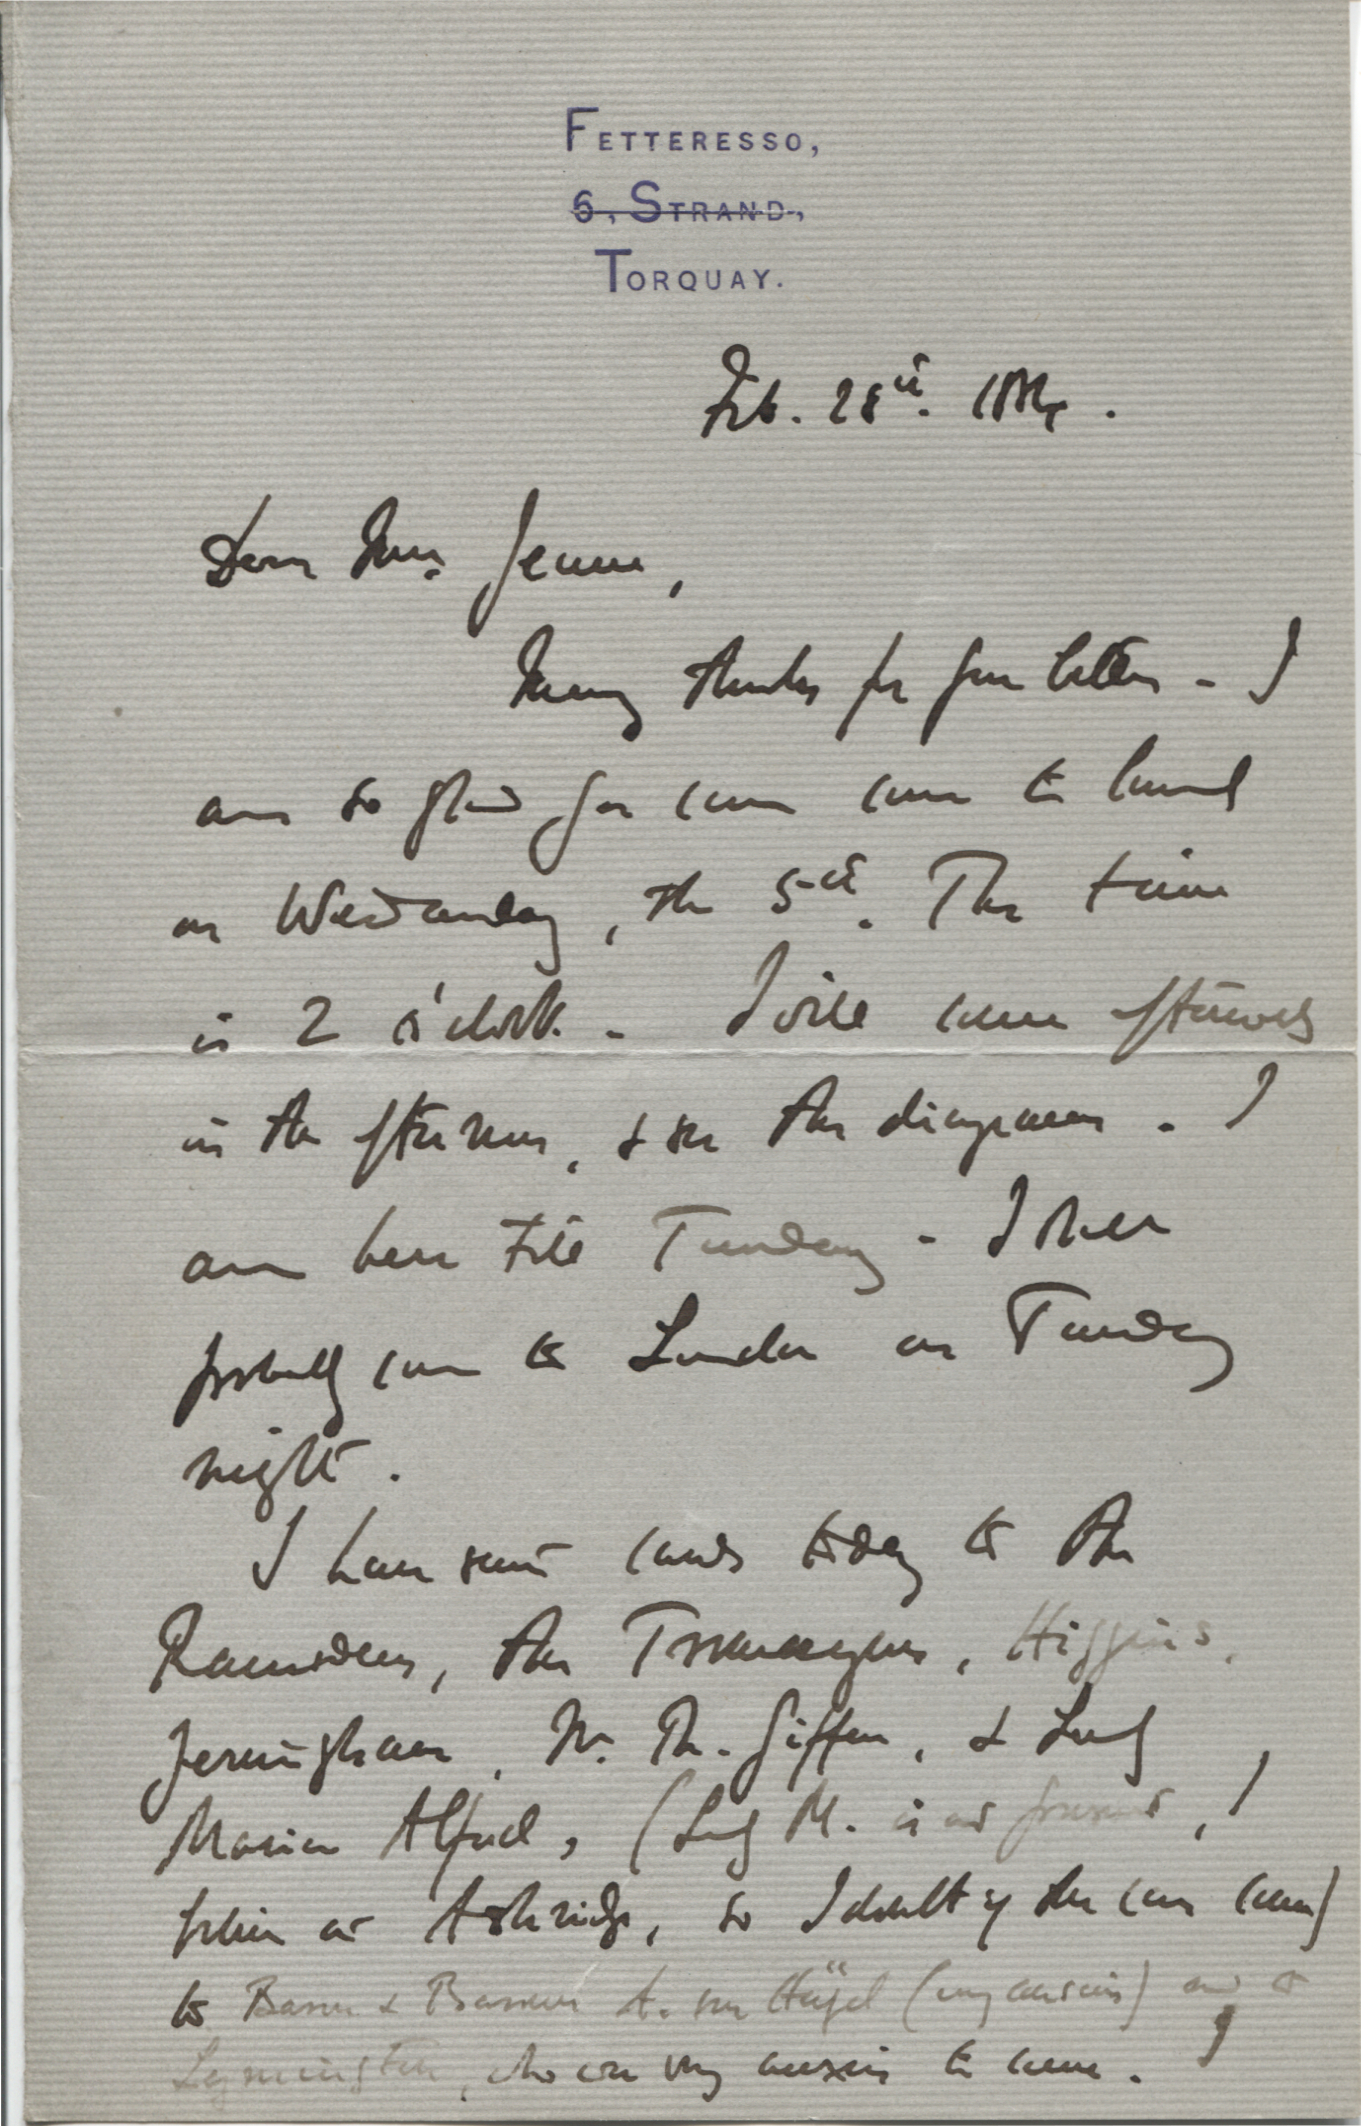 FETTERESSO,
6, STRAND,
TORQUAY.
Feb. 28th. 1884.
Dear Mrs. Jeune,
Many thanks for your letter - I
am so glad you can come to lunch
on Wednesday, the 5th. The time
is 2 o'clock - I will come afterwards
in the afternoon, & see the diagrams. I
am here till Tuesday - I shall
probably come to London on Tuesday
night.
I have sent cards today to the
Ramsdens, the Higgins,
Jerningham, Giffen, & Lady
Marian Alford, (Lady M. is at present, I
believe at Ashridge, so I doubt if she can come)
to Baron & Baroness A. von Hügel (my cousin) and to
Lymington, who are very anxious to come. I